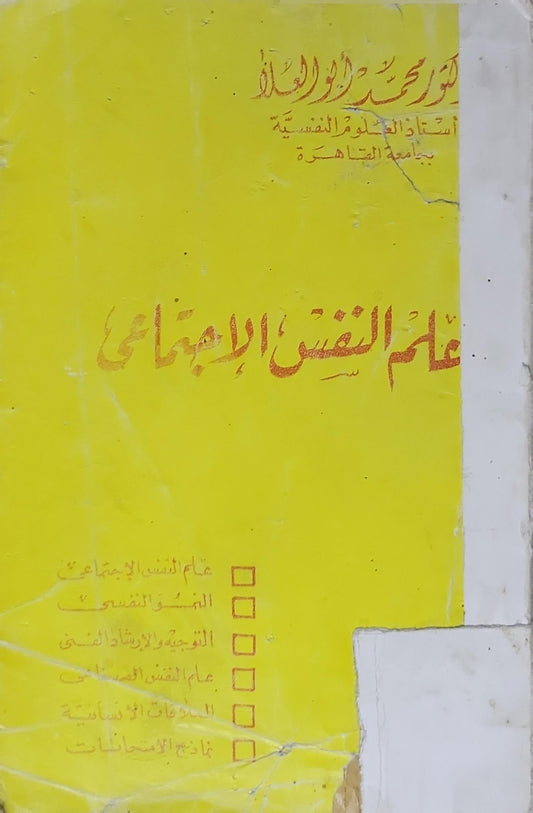 كتور محمد أبو العلا
أستاذ العلوم النفسية
بجامعة القاهرة
علم النفس الإجتماعى
علم النفس الإجتماعى
النمو النفسى
التوجيه والإرشاد الفنى
علم النفس الصناعى
العلاقات الأنسانية
نماذج الامتحانات